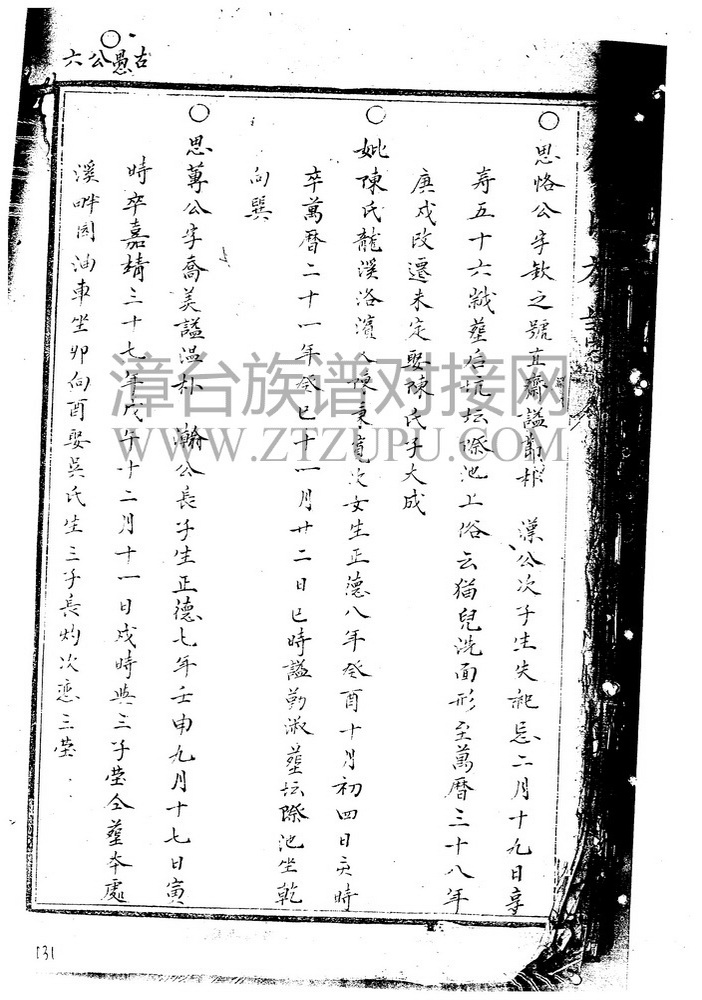 古愚公六
思恪公字欽之號直齋謚節根 漢公次子生失紀忌二月十九日享
寿五十六歲塟后坑坛際池上俗云猫兒洗面形至萬曆三十八年
庚戍改遷未定娶陳氏子大成
妣陳氏龍溪洛濱 次女生正德八年癸酉十月初四日亥時
卒萬曆二十一年癸巳十一月廿二日巳時謚勤淑塟坛際池坐乾
向巽
思蓴公字喬美謚温朴 瀚公長子生正德七年壬申九月十七日寅
時卒嘉靖三十七年戊午十二月十一日戍時與三子瑩仝塟本處
溪畔園油車坐卯向酉娶吳氏生三子長灼次 三瑩
漳台族谱对接网
WWW.ZTZUPU.COM
131